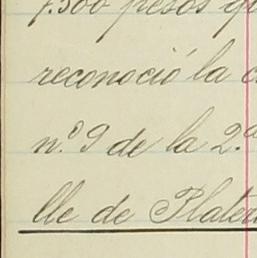 7.500 pesos
reconoció la
nº 9 de la 2.ª
lle de